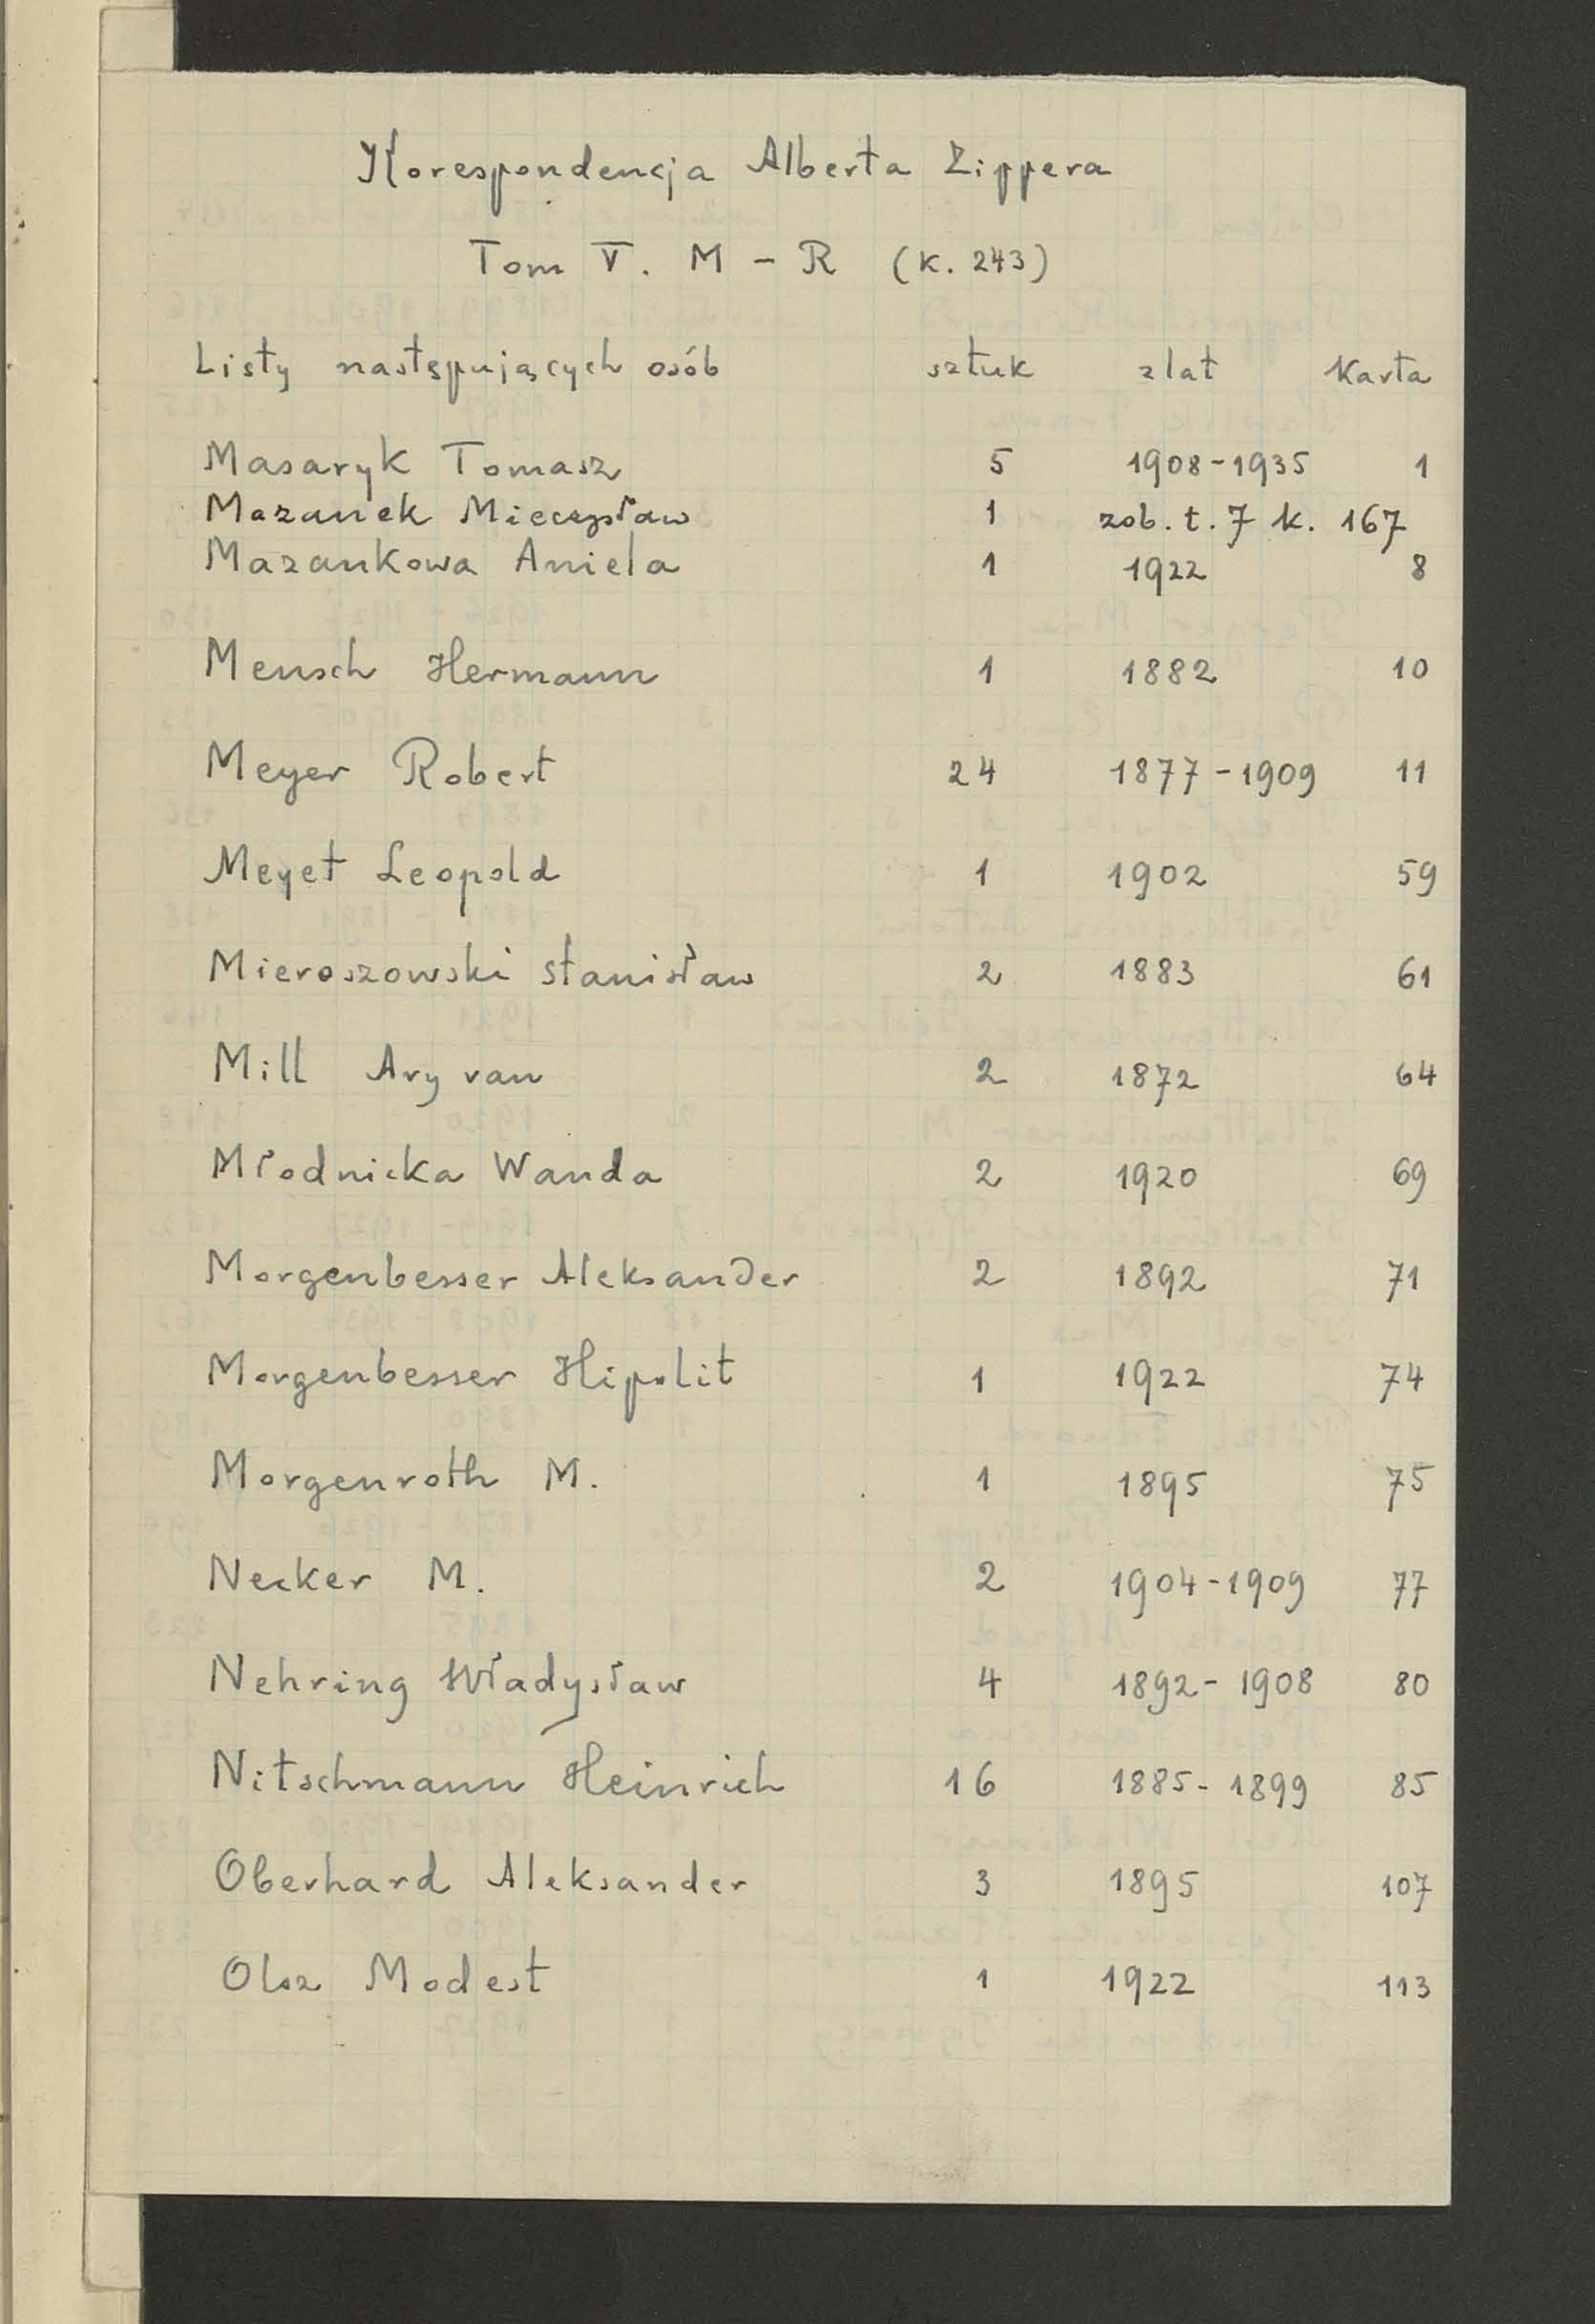 Korespondencja Alberta Zippera
Tom V. M - R (k. 243)
Listy następujących osób sztuk z lat Karta
Masaryk Tomasz 5 1908-1935 1
Mazanek Mieczysław 1 zob. t. 7 k. 167
Mazankowa Aniela 1 1922 8
Mensch Hermann 1 1882 10
Meyer Robert 24 1877-1909 11
Meyet Leopold 1 1902 59
Mieroszowski Stanisław 2 1883 61
Mill Ary van 2 1872 64
Młodnicka Wanda 2 1920 69
Morgenbesser Aleksander 2 1892 71
Morgenbesser Hipolit 1 1922 74
Morgenroth M. 1 1895 75
Necker M. 2 1904-1909 77
Nehring Władysław 4 1892-1908 80
Nitschmann Heinrich 16 1885-1899 85
Oberhard Aleksander 3 1895 107
Olsz Modest 1 1922 113